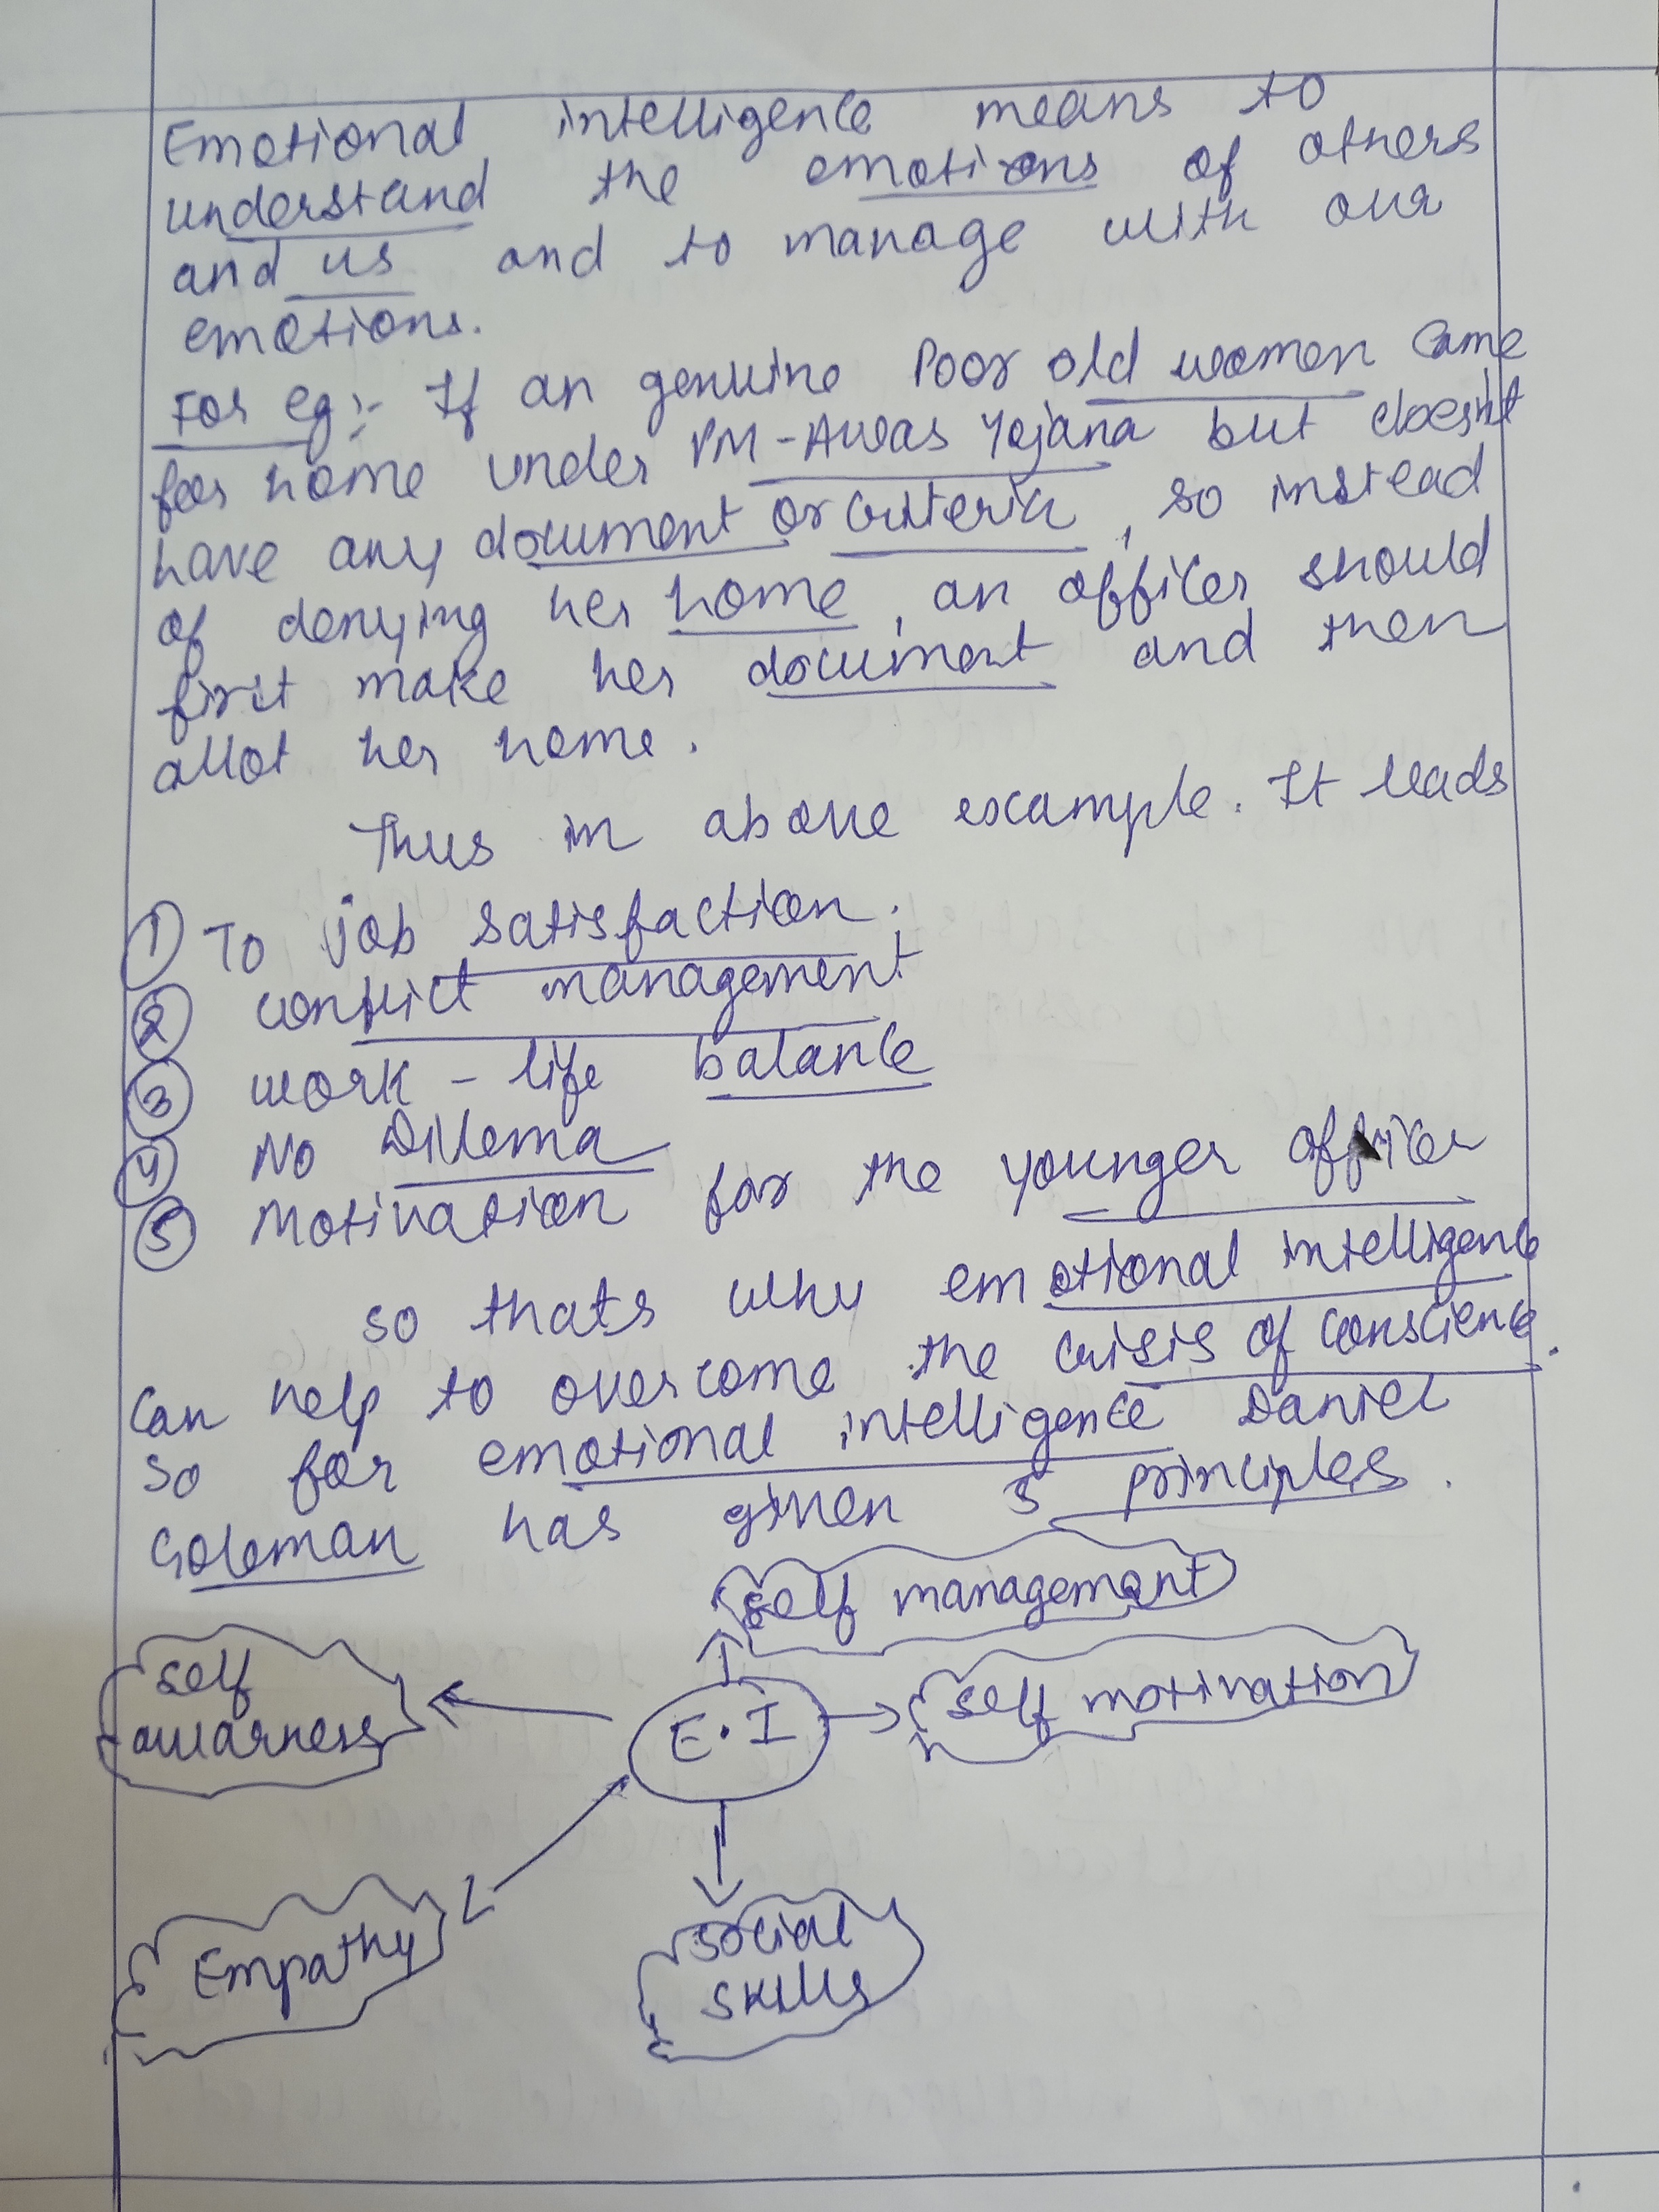 Emotional intelligence means to
understand the emotions of others
and us and to manage with our
emotions.
For eg:- If an genuine Poor old women came
for home under PM-Awas Yojana but doesn't
have any document or criteria, so instead
of denying her home, an officer should
first make her document and then
allot her home.
Thus in above example. It leads
① To job satisfaction.
② conflict management
③ work-life balance
④ No Dillema
⑤ Motivation for the younger officer
so thats why emotional intelligence
can help to overcome the crisis of conscience.
so for emotional intelligence Daniel
Goleman has given 5 principles.
self management
self
awarness
E.I
self motivation
Empathy
social
skills